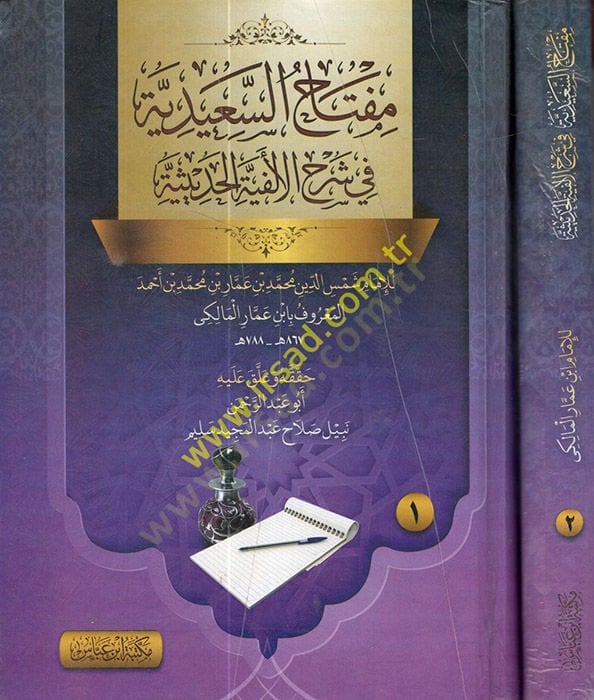 مِفْتَاحُ السَّعِيدِيَّةِ
فِي شَرْحِ الأَلْفِيَّةِ الحَدِيثِيَّةِ
للإِمَامِ شَمْسِ الدِّينِ مُحَمَّدِ بْنِ عَمَّارِ بْنِ مُحَمَّدِ بْنِ أَحْمَدَ
المَعْرُوفُ بِابْنِ عَمَّارِ الْمَالِكِى
٨٦٧هـ - ٧٨٨هـ
حَقَّقَهُ وَعَلَّقَ عَلَيهِ
أَبُو عَبْدِ الرَّحْمٰنِ
نَبِيْل صَلاَح عَبْد المَجِيْد سَلِيم
١
مكتبة ابن عباس
www.irsad.com.tr
www.irsad.com.tr
مِفْتَاحُ السَّعِيدِيَّةِ فِي شَرْحِ الأَلْفِيَّةِ الحَدِيثِيَّةِ
للإِمَامِ ابْنِ عَمَّارِ الْمَالِكِى
٢
مكتبة ابن عباس